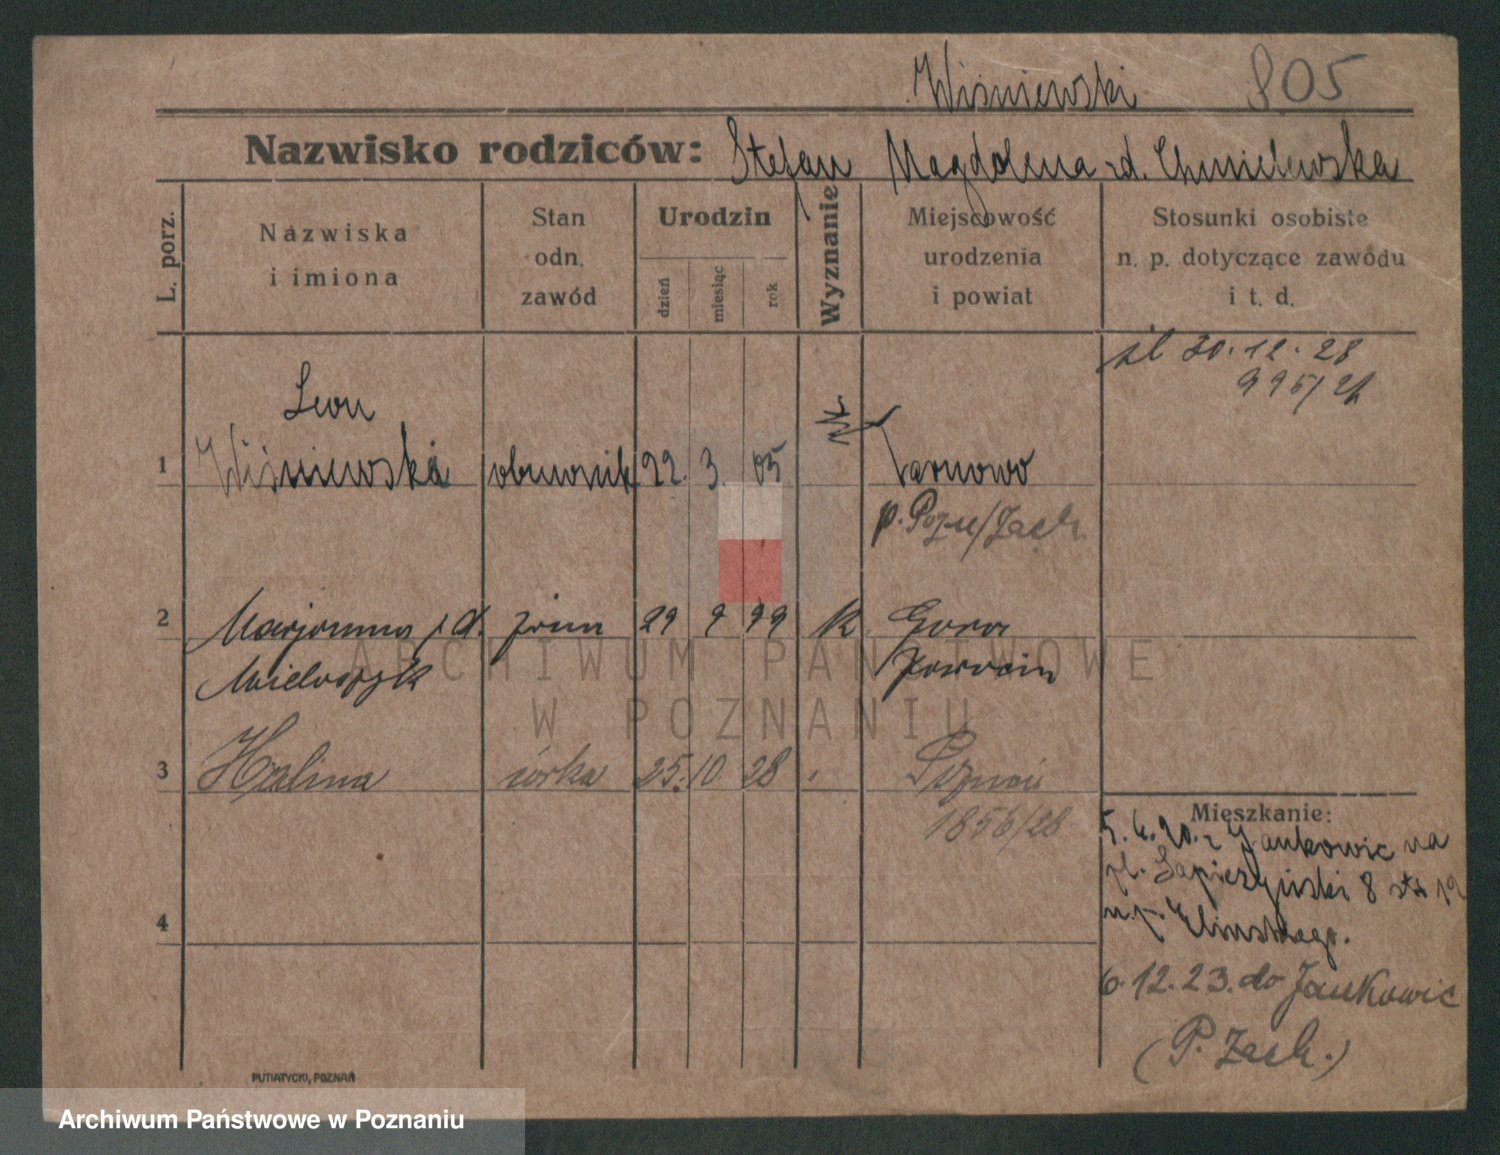 Wiśniewski 805
Nazwisko rodziców: Stefan Magdalena zd. Chmielewska
L. porz.
Nazwiska
i imiona
Stan
odn.
zawód
Urodzin
dzień
miesiąc
rok
Wyznanie
Miejscowość
urodzenia
i powiat
Stosunki osobiste
n. p. dotyczące zawodu
i t. d.
śl 30.12.28
Leon
1 Wiśniewski obuwnik 22. 3. 05 Tarnowo
p. Pozn/Zach
2 Marjanna z d. 29 9 99 k Gora
Jarocin
3 Halina córka 25. 10 28 Poznań
1856/28
Mieszkanie:
5. 6. 20. z Jankowic na
pl. Sapieżyński 8 12
u p.
4
6.12.23. do Jankowic
(P. Zach.)
PUTIATYCKI, POZNAŃ
ARCHIWUM PAŃSTWOWE
W POZNANIU
Archiwum Państwowe w Poznaniu